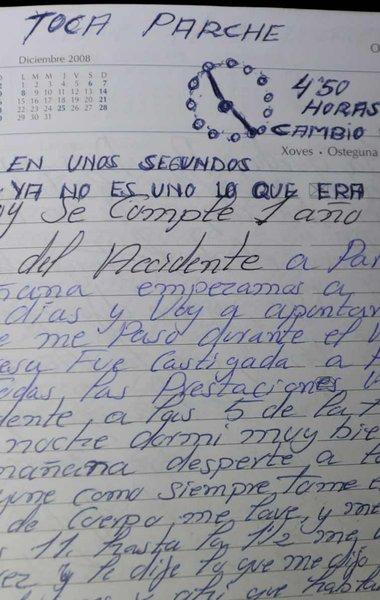 TOCA PARCHE
Diciembre 2008
L M M J V S D
1 2 3 4 5 6 7
8 9 10 11 12 13 14
15 16 17 18 19 20 21
22 23 24 25 26 27 28
29 30 31
4'50
HORAS
CAMBIO
Xoves • Osteguna
EN UNOS SEGUNDOS
YA NO ES UNO LO QUE ERA
y Se Comple 1 año
del Accidente a Par
ñana empezamos a
dias y Voy a apuntar
e me Paso durante el
resa Fue Castigada a
todas las Prestaciones
dente a las 5 de la T
noche dormi muy bie
mañana desperte a
yune como siempre tome
de Cuerpo me lave, y me
11 hasta la 12 me
vez y le dije lo que me dijo
que habla